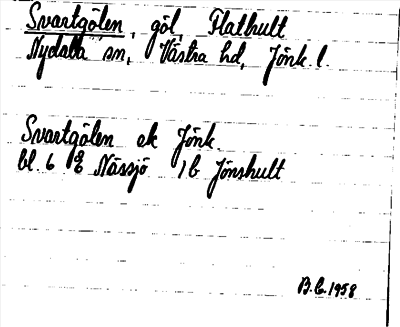 Svartgölen, göl, Flathult
Nydala sn, Västra hd, Jönk. l.
Svartgölen ek Jönk.
bl. 6 Nässjö 1b Jönshult
B.C. 1958